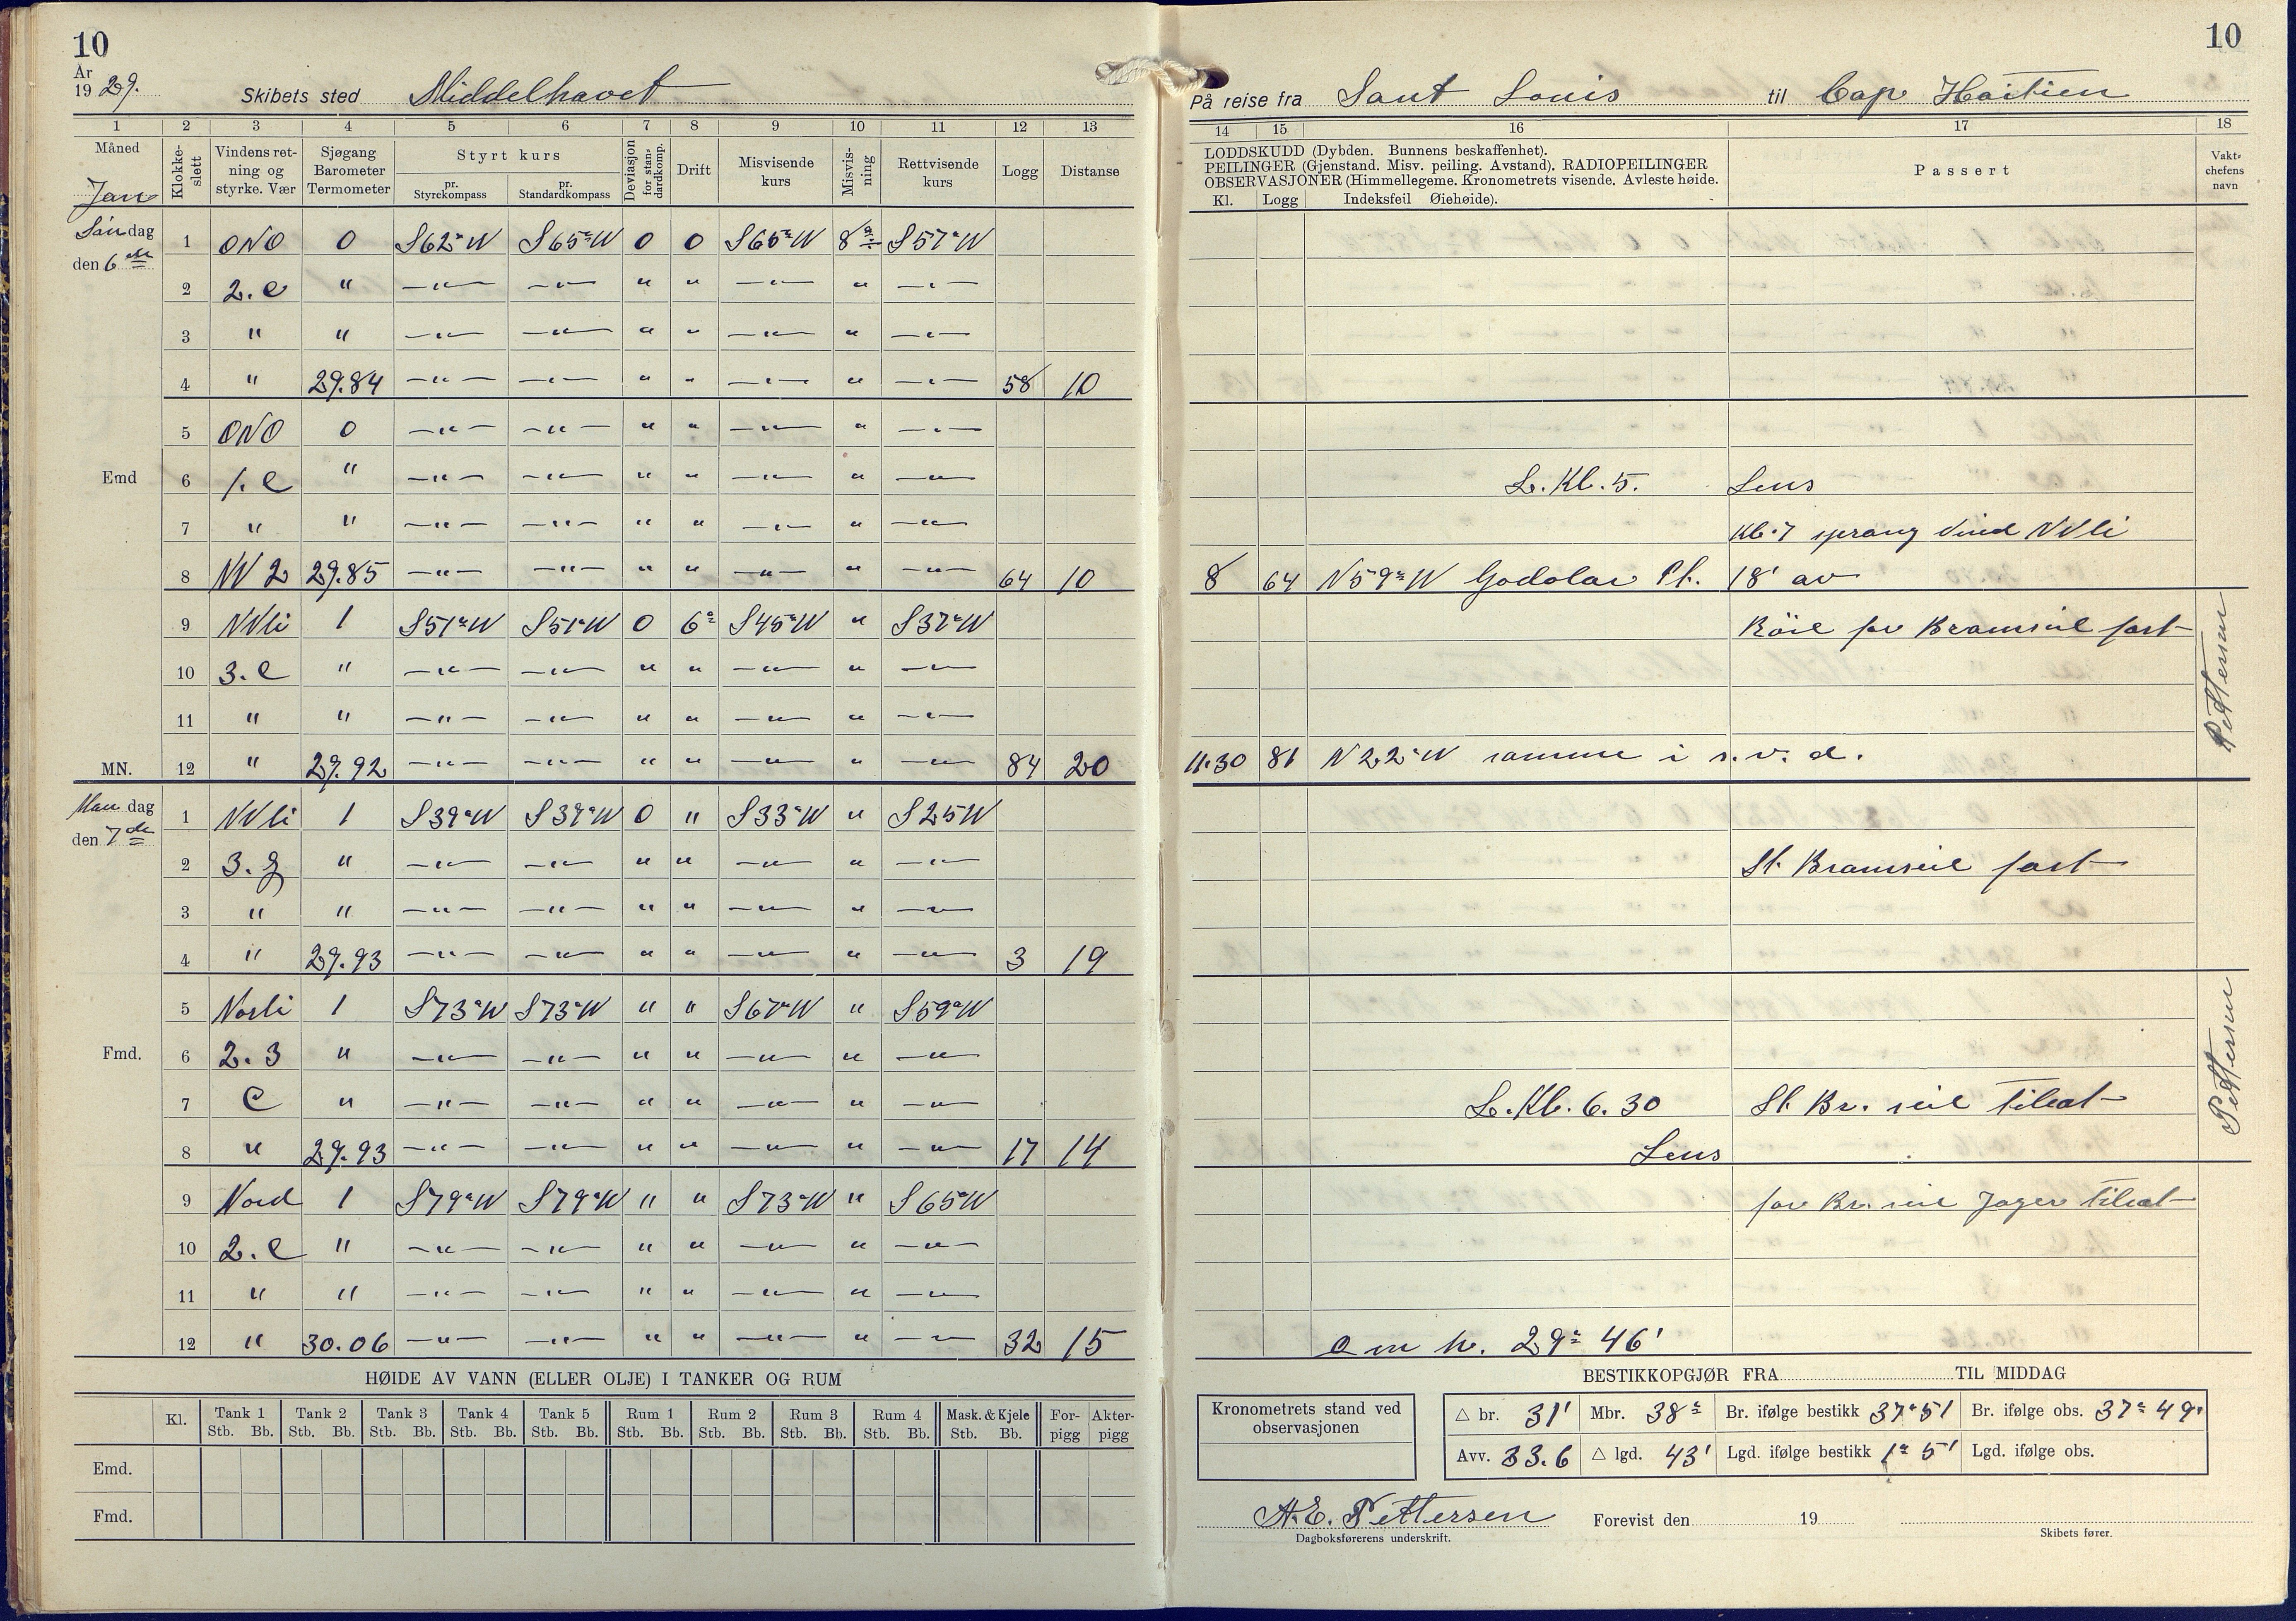 10
År
1929.
Skibets sted Middelhavet
1 2 3 4 5 6 7 8 9 10 11 12 13
Måned Jan
Klokke-slett
Vindens retning og styrke. Vær
Sjøgang Barometer Termometer
Styrt kurs
pr. Styrekompass
pr. Standardkompass
Deviasjon for standardkomp.
Drift
Misvisende kurs
Misvisning
Rettvisende kurs
Logg
Distanse
Søndag
den 6te
1 ONO 0 S62°W S65°W 0 0 S65°W 8° S57°W
2 2.c " —"— —"— " " —"— " —"—
3 " " —"— —"— " " —"— " —"—
4 " 29.84 —"— —"— " " —"— " —"— 58 10
5 ONO 0 —"— —"— " " —"— " —"—
Emd 6 1.c " —"— —"— " " —"— " —"—
7 " " —"— —"— " " —"— " —"—
8 NV 2 29.85 —"— —"— " " —"— " —"— 64 10
9 NVli 1 S51°W S51°W 0 6° S45°W " S37°W
10 3.c " —"— —"— " " —"— " —"—
11 " " —"— —"— " " —"— " —"—
MN. 12 " 29.92 —"— —"— " " —"— " —"— 84 20
Mandag
den 7de
1 NVli 1 S39°W S39°W 0 " S33°W " S25W
2 3. " —"— —"— " " —"— " —"—
3 " " —"— —"— " " —"— " —"—
4 " 29.93 —"— —"— " " —"— " —"— 3 19
5 Norli 1 S73°W S73°W " " S67°W " S59°W
Fmd. 6 2.3 " —"— —"— " " —"— " —"—
7 C " —"— —"— " " —"— " —"—
8 " 29.93 —"— —"— " " —"— " —"— 17 14
9 Nord 1 S79°W S79°W " " S73°W " S65°W
10 2.c " —"— —"— " " —"— " —"—
11 " " —"— —"— " " —"— " —"—
12 " 30.06 —"— —"— " " —"— " —"— 32 15
HØIDE AV VANN (ELLER OLJE) I TANKER OG RUM
Kl. Tank 1 Tank 2 Tank 3 Tank 4 Tank 5 Rum 1 Rum 2 Rum 3 Rum 4 Mask. & Kjele For-pigg Akter-pigg
Stb. Bb. Stb. Bb. Stb. Bb. Stb. Bb. Stb. Bb. Stb. Bb. Stb. Bb. Stb. Bb. Stb. Bb. Stb. Bb.
Emd.
Fmd.
10
På reise fra Sant Louis til Cap Haitien
14 15 16 17 18
LODDSKUDD (Dybden. Bunnens beskaffenhet).
PEILINGER (Gjenstand. Misv. peiling. Avstand). RADIOPEILINGER
OBSERVASJONER (Himmellegeme. Kronometrets visende. Avleste høide.
Kl. Logg Indeksfeil Øiehøide).
Passert
Vakt-chefens navn
L. Kl. 5. Lens
Kl. 7 sprang Vind NVli
8 64 N59°W Pt. 18' av
Röil for Bramseil fast
Pettersen
11.30 81 N22°W samme i s.v.d.
St. Bramseil fast
Pettersen
L. Kl. 6.30 St. Br. seil tilsat
Lens
for Br. seil Jager tilsat
o m h. 29° 46'
BESTIKKOPGJØR FRA TIL MIDDAG
Kronometrets stand ved observasjonen
△ br. 31' Mbr. 38° Br. ifølge bestikk 37°51 Br. ifølge obs. 37°49'
Avv. 33.6 △ lgd. 43' Lgd. ifølge bestikk 1° 5' Lgd. ifølge obs.
A.E. Pettersen
Dagboksførerens underskrift.
Forevist den 19
Skibets fører.